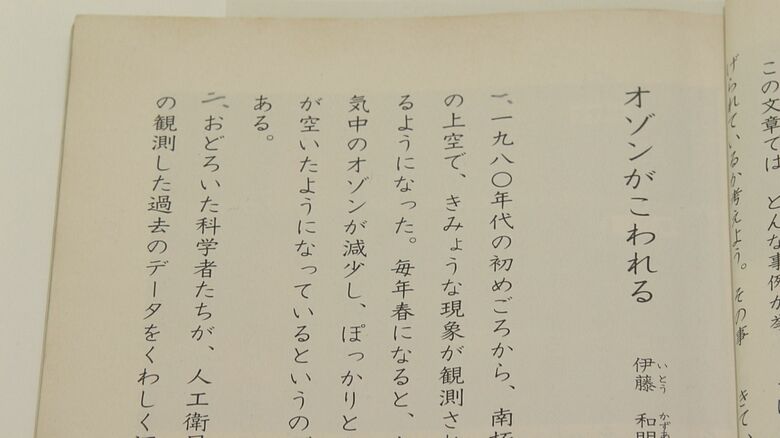 この文章では どんな事例が
げられているか考えよう。その事
きて
オゾンがこわれる
伊藤 和明
いとう かずあ
一、一九八〇年代の初めごろから、南極
の上空で、きみょうな現象が観測され
るようになった。毎年春になると、
気中のオゾンが減少し、ぽっかりと
が空いたようになっているというので
ある。
二、おどろいた科学者たちが、人工衛星
の観測した過去のデータをくわしく